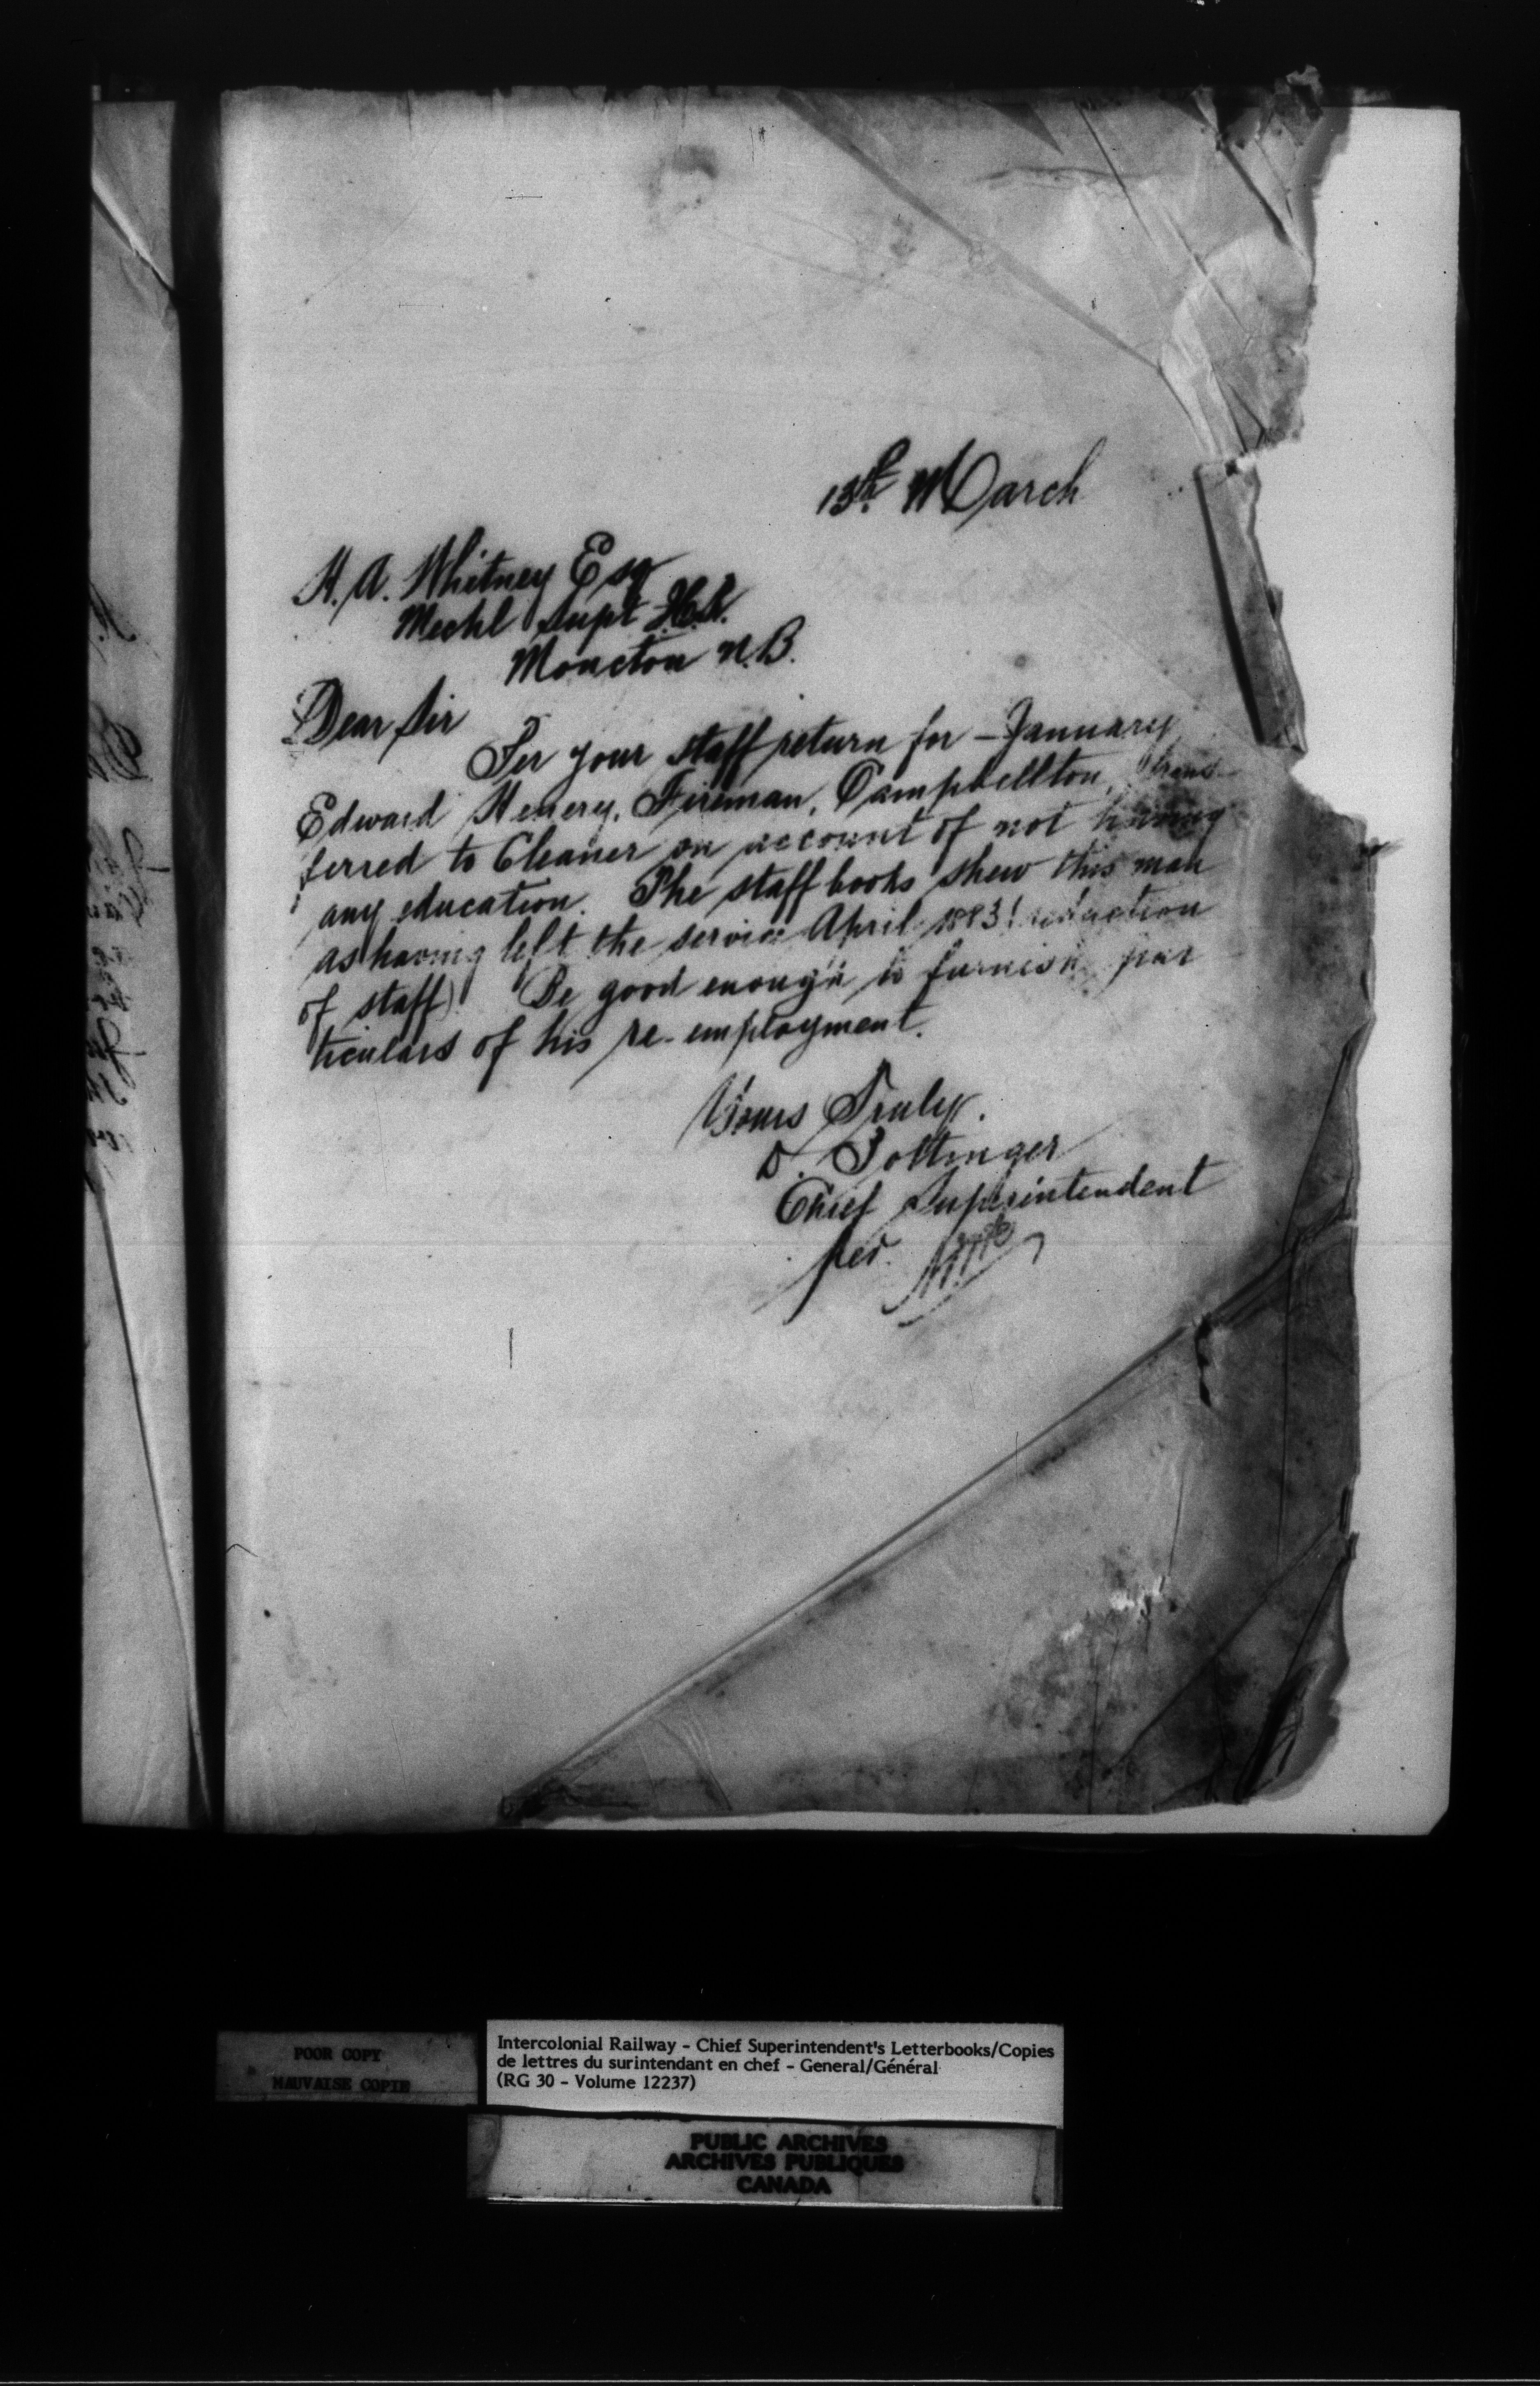 13th March
H. A. Whitney Esq
Mechl Supt
Moncton N.B.
Dear Sir
Per your staff return for January
Edward Henery, Fireman, Campbellton, trans-
ferred to Cleaner on account of not having
any education. The staff books shew this man
as having left the service April 1883 (reduction
of staff) Be good enough to furnish par
ticulars of his re-employment.
Yours Truly.
D. Pottinger
Chief Superintendent
per.
POOR COPY
MAUVAISE COPIE
Intercolonial Railway - Chief Superintendent's Letterbooks/Copies
de lettres du surintendant en chef - General/Général
(RG 30 - Volume 12237)
PUBLIC ARCHIVES
ARCHIVES PUBLIQUES
CANADA